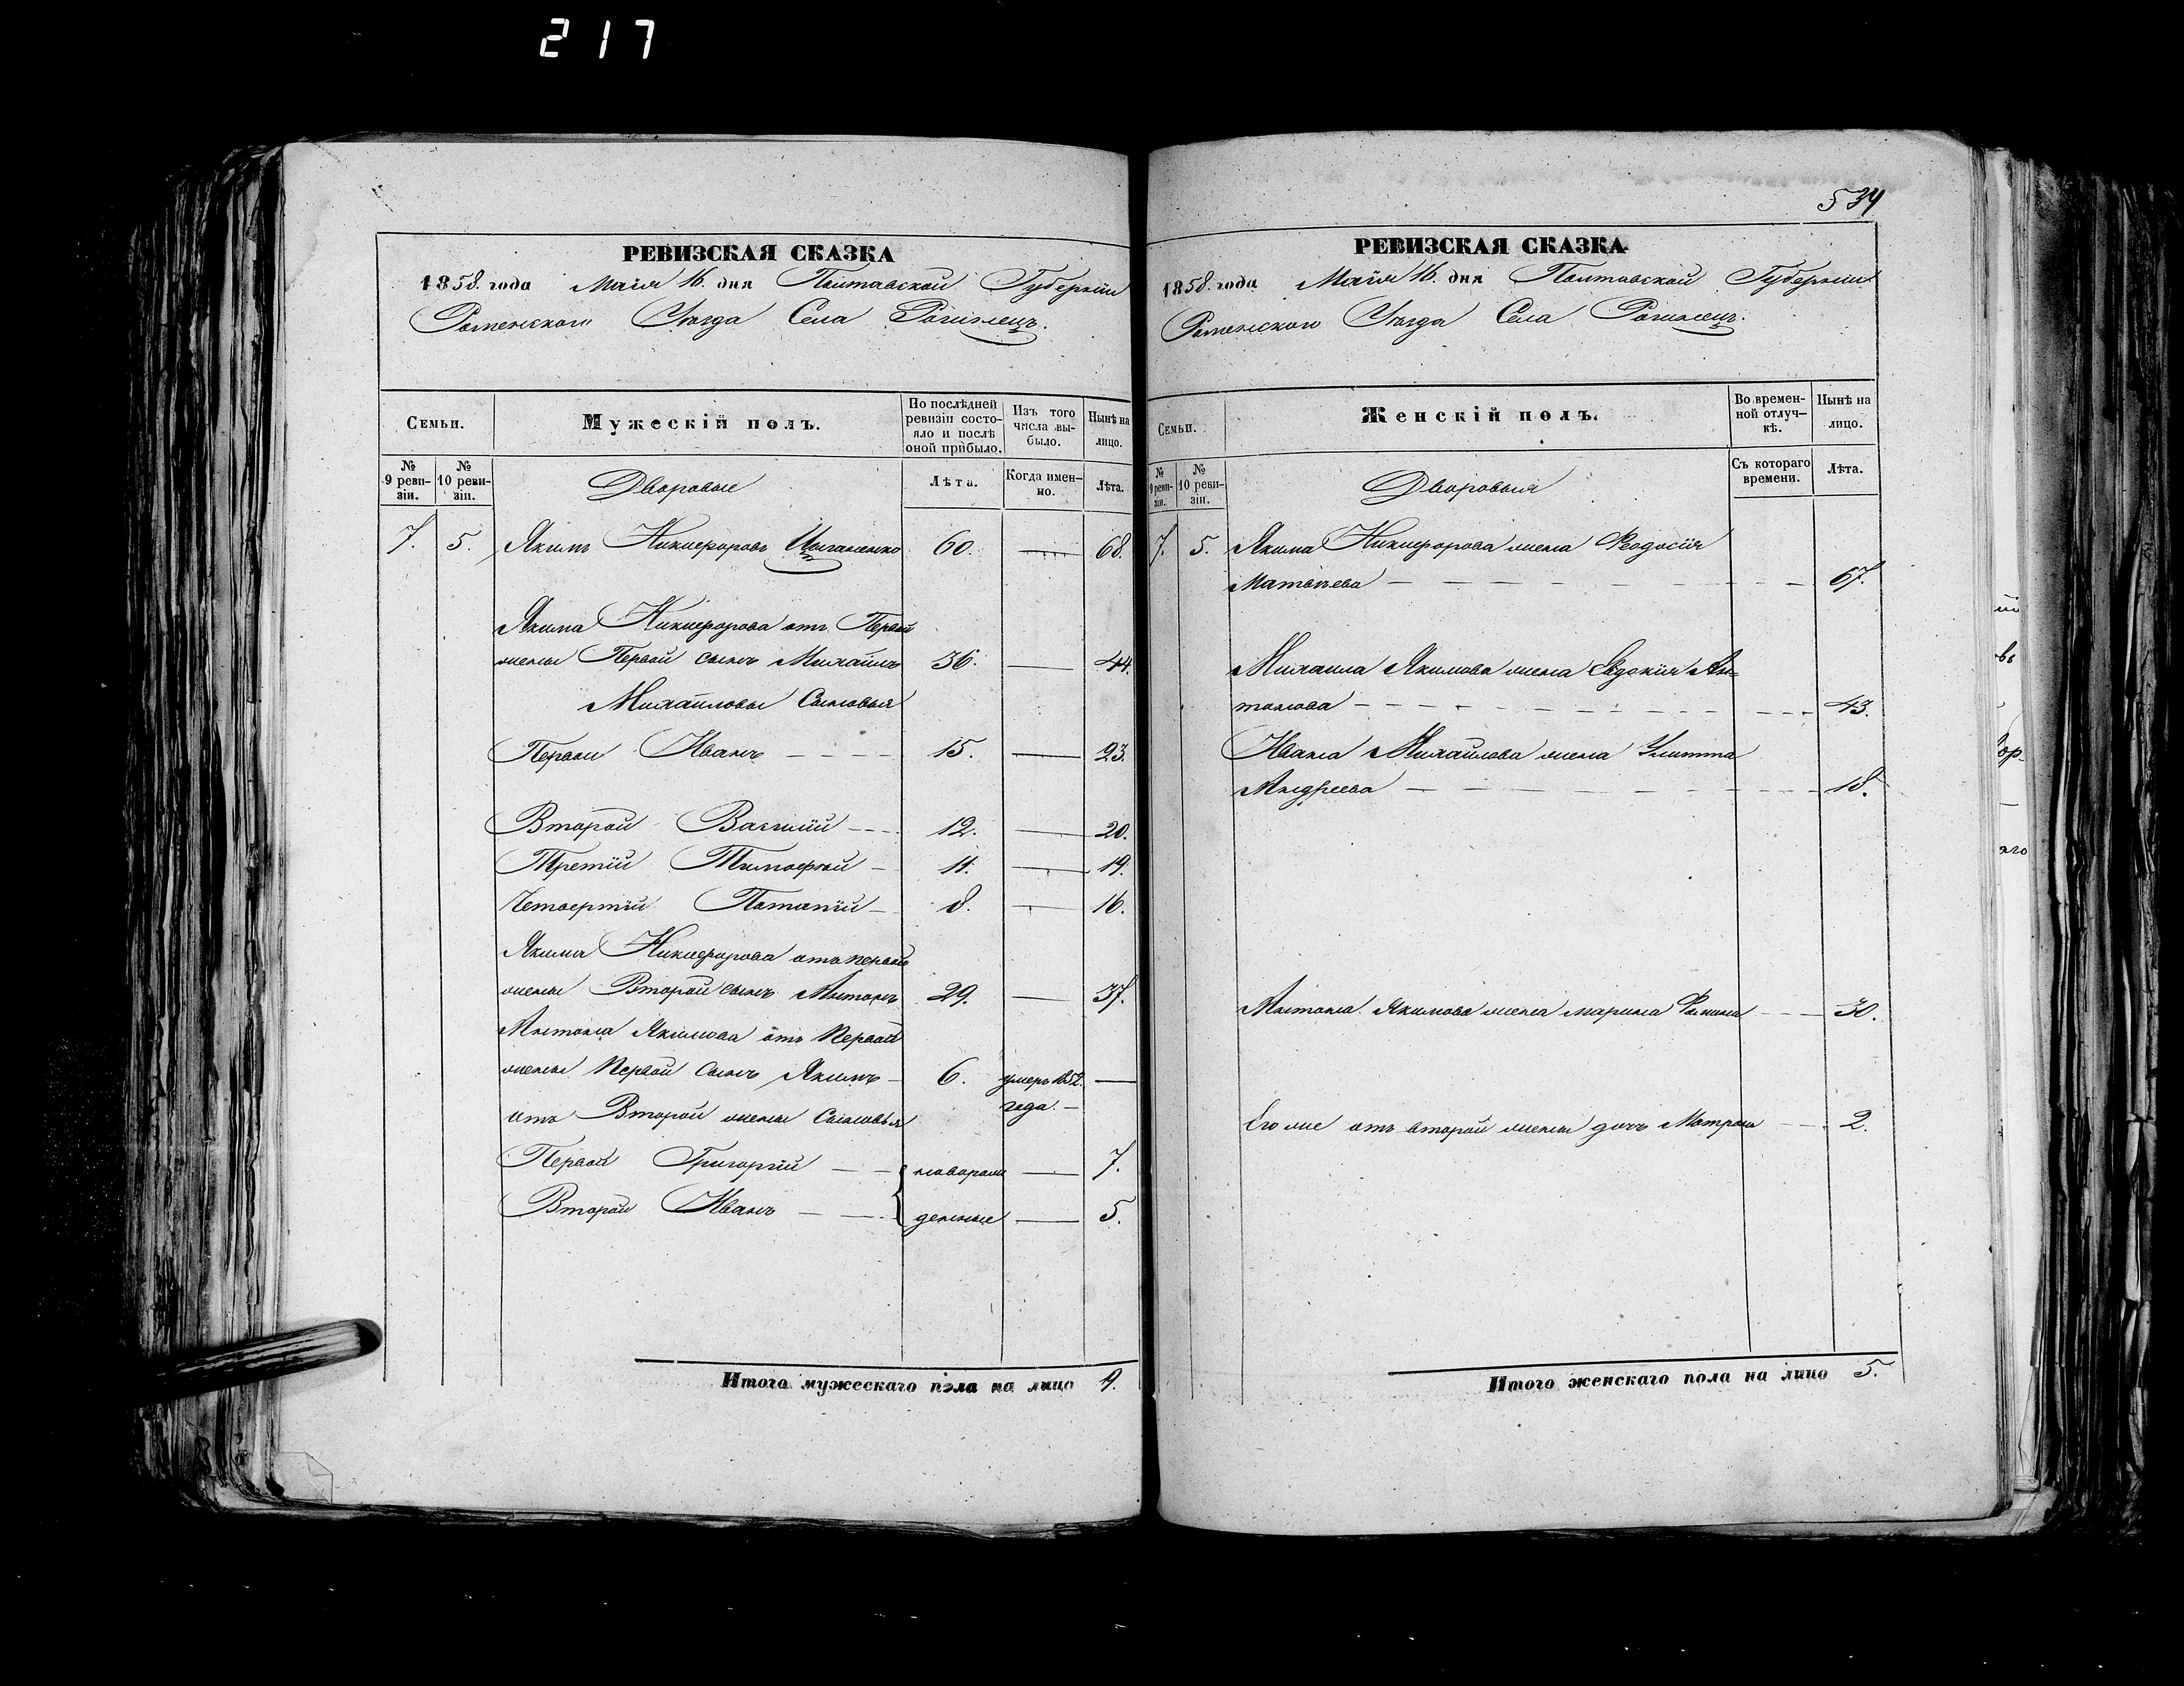 217
534
РЕВИЗСКАЯ СКАЗКА
1858. года Маія 16. дня Полтавской Губерніи
Роменского Уѣзда Села Рогинецъ.
Семьи.
Мужескій полъ.
По послѣдней ревизіи состояло и послѣ оной прибыло.
Изъ того числа выбыло.
Нынѣ на лицо.
№ 9 ревизіи.
№ 10 ревизіи.
Дворовые
Лѣта.
Когда именно.
Лѣта.
7. 5. Якимъ Никифоровъ Цыганенко 60. — 68.
Якима Никифорова отъ Первой
жены Первой сынъ Михаилъ 36. — 44.
Михайловы Сыновья
Первой Иванъ — — — 15. — 23.
Второй Василій — — 12. — 20.
Третій Тимофей — 11. — 19.
Четвертій Потапій — 8. — 16.
Якима Никифорова отъ первой
жены Второй сынъ Антонъ 29. — 37.
Антона Якимова отъ Первой
жены Первой Сынъ Якимъ — 6. умеръ 1852. —
года. —
отъ Второй жены Сыновья
Первой Григорій — — новорож — 7.
Второй Иванъ — — денные — 5.
Итого мужескаго пола на лицо 9.
РЕВИЗСКАЯ СКАЗКА
1858. года Маія 16. дня Полтавской Губерніи
Роменского Уѣзда Села Рогинецъ.
Семьи.
Женскій полъ.
Во временной отлучкѣ.
Нынѣ на лицо.
№ 9 ревизіи.
№ 10 ревизіи.
Дворовыя
Съ котораго времени.
Лѣта.
7. 5. Якима Никифорова жена Феодосія
Матвѣева — — — — — — 67.
Михаила Якимова жена Евдокія Ан=
тонова — — — — — — 43.
Ивана Михайлова жена Улитта
Андреева — — — — — — 18.
Антона Якимова жена Марина Фомина — — 30.
Его же отъ второй жены дочь Мотрона — — 2.
Итого женскаго пола на лицо 5.